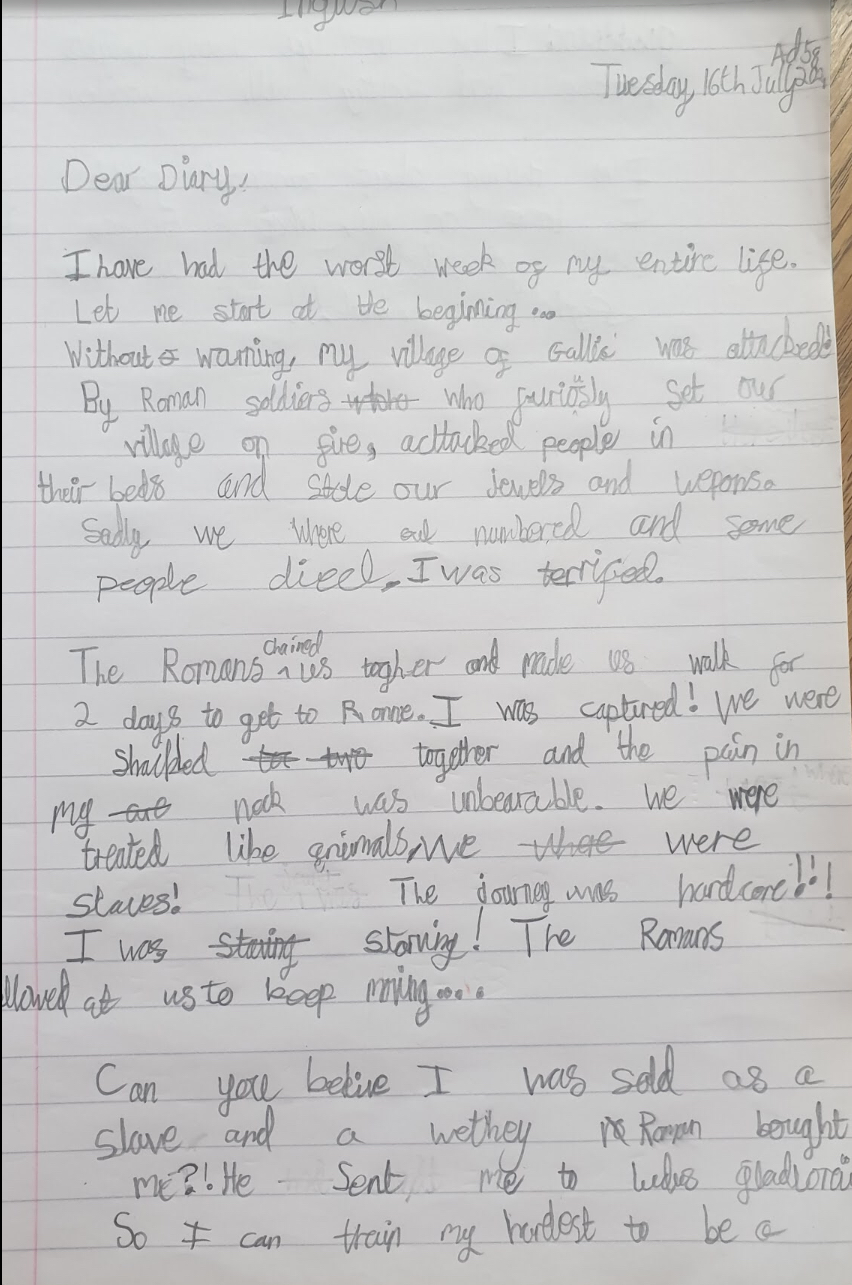 English
Ad58
Tuesday, 16th July
Dear Diary,
I have had the worst week of my entire life.
Let me start at the beginning...
Without warning, my village of Gallic was attacked!
By Roman soldiers who furiosly set our
village on fire, acttacked people in
their beds and stole our jewels and wepons.
Sadly we where out numbered and some
people dieed. I was terrifed.
The Romans chained us togher and made us walk for
2 days to get to Rome. I was captured! We were
Shackled together and the pain in
my neck was unbearable. We were
treated like animals, we were
slaves! The journey was hardcore!!!
I was starving! The Romans
at us to keep
Can you belive I was sold as a
slave and a wethey Roman bought
me?! He Sent me to ludus
So I can train my hardest to be a